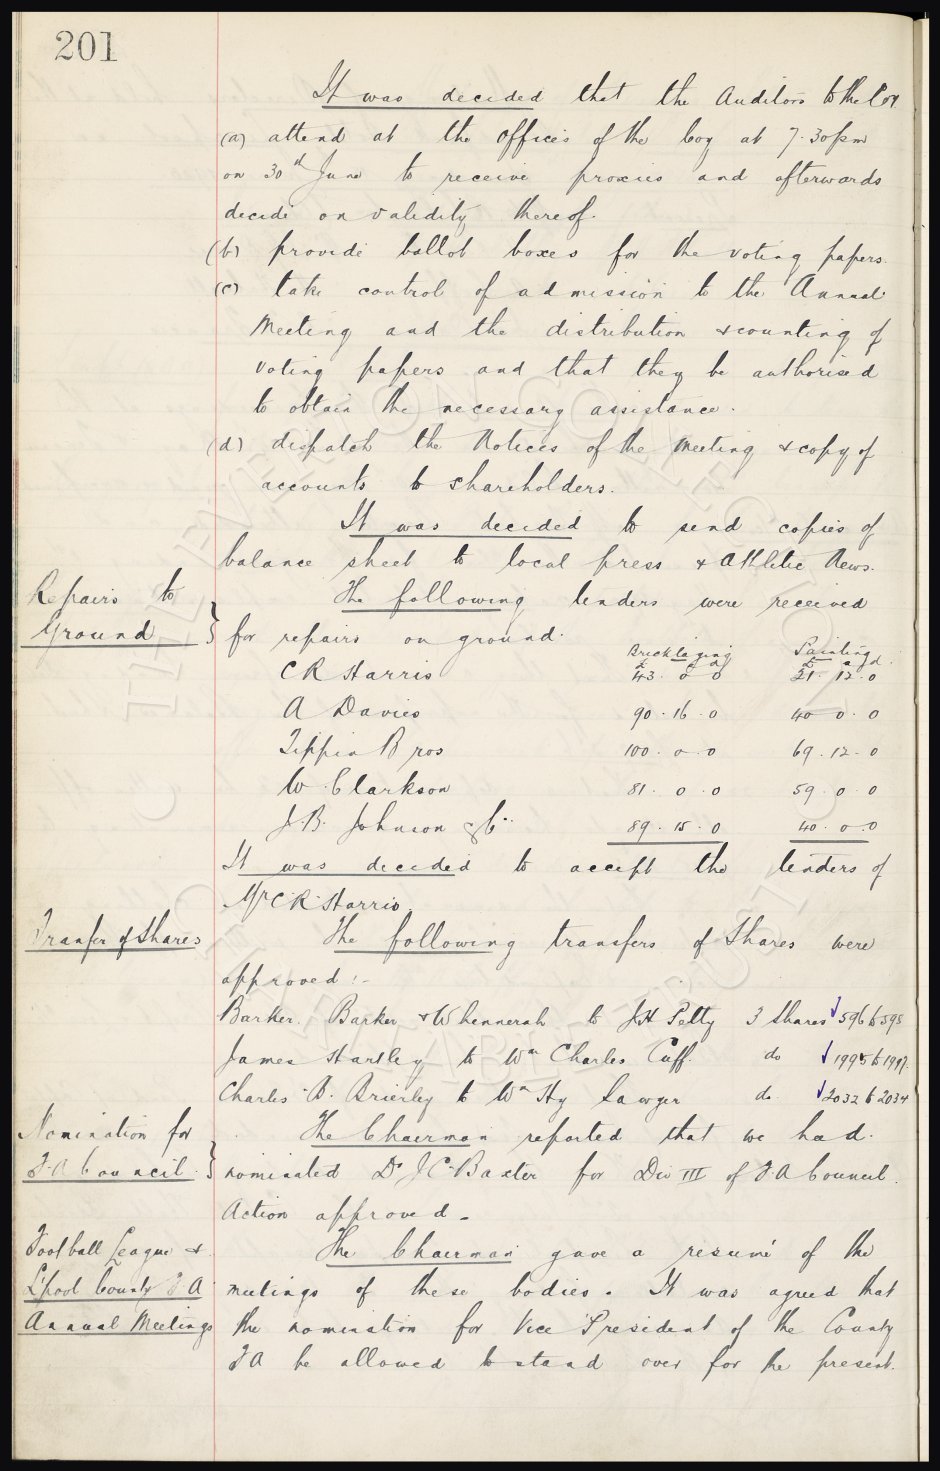 201
It was decided that the Auditors to the Coy
(a) attend at the offices of the Coy at 7.30pm
on 30th June to receive proxies and afterwards
decide on validity thereof.
(b) provide ballot boxes for the voting papers.
(c) take control of admission to the Annual
Meeting and the distribution & counting of
voting papers and that they be authorised
to obtain the necessary assistance.
(d) dispatch the Notices of the meeting & copy of
accounts to shareholders.
It was decided to send copies of
balance sheet to local press & Athletic News.
Repairs to
Ground
The following tenders were received
for repairs on ground.
Bricklaying Painting
£ s d £ s d
C R Harris 43. 0 0 21. 12. 0
A Davies 90. 16. 0 40 0. 0
Tippin Bros 100. 0. 0 69. 12. 0
W. Clarkson 81. 0. 0 59. 0. 0
J.B. Johnson & Co. 89. 15. 0 40. 0. 0
It was decided to accept the tenders of
Mr C R Harris.
Tranfer of Shares
The following transfers of Shares were
approved:-
Barker, Barker & Whennerah to J H Petty 3 Shares 596 to 598
James Hartley to Wm Charles Cuff. do 1995 to 1997.
Charles B. Brierley to Wm Hy Sawyer do 2032 to 2034
Nomination for
F.A Council
The Chairman reported that we had
nominated Dr J C Baxter for Div III of F.A Council.
Action approved.
Football League &
L'pool County F.A
Annual Meetings
The Chairman gave a resumé of the
meetings of these bodies. It was agreed that
the nomination for Vice President of the County
FA be allowed to stand over for the present.